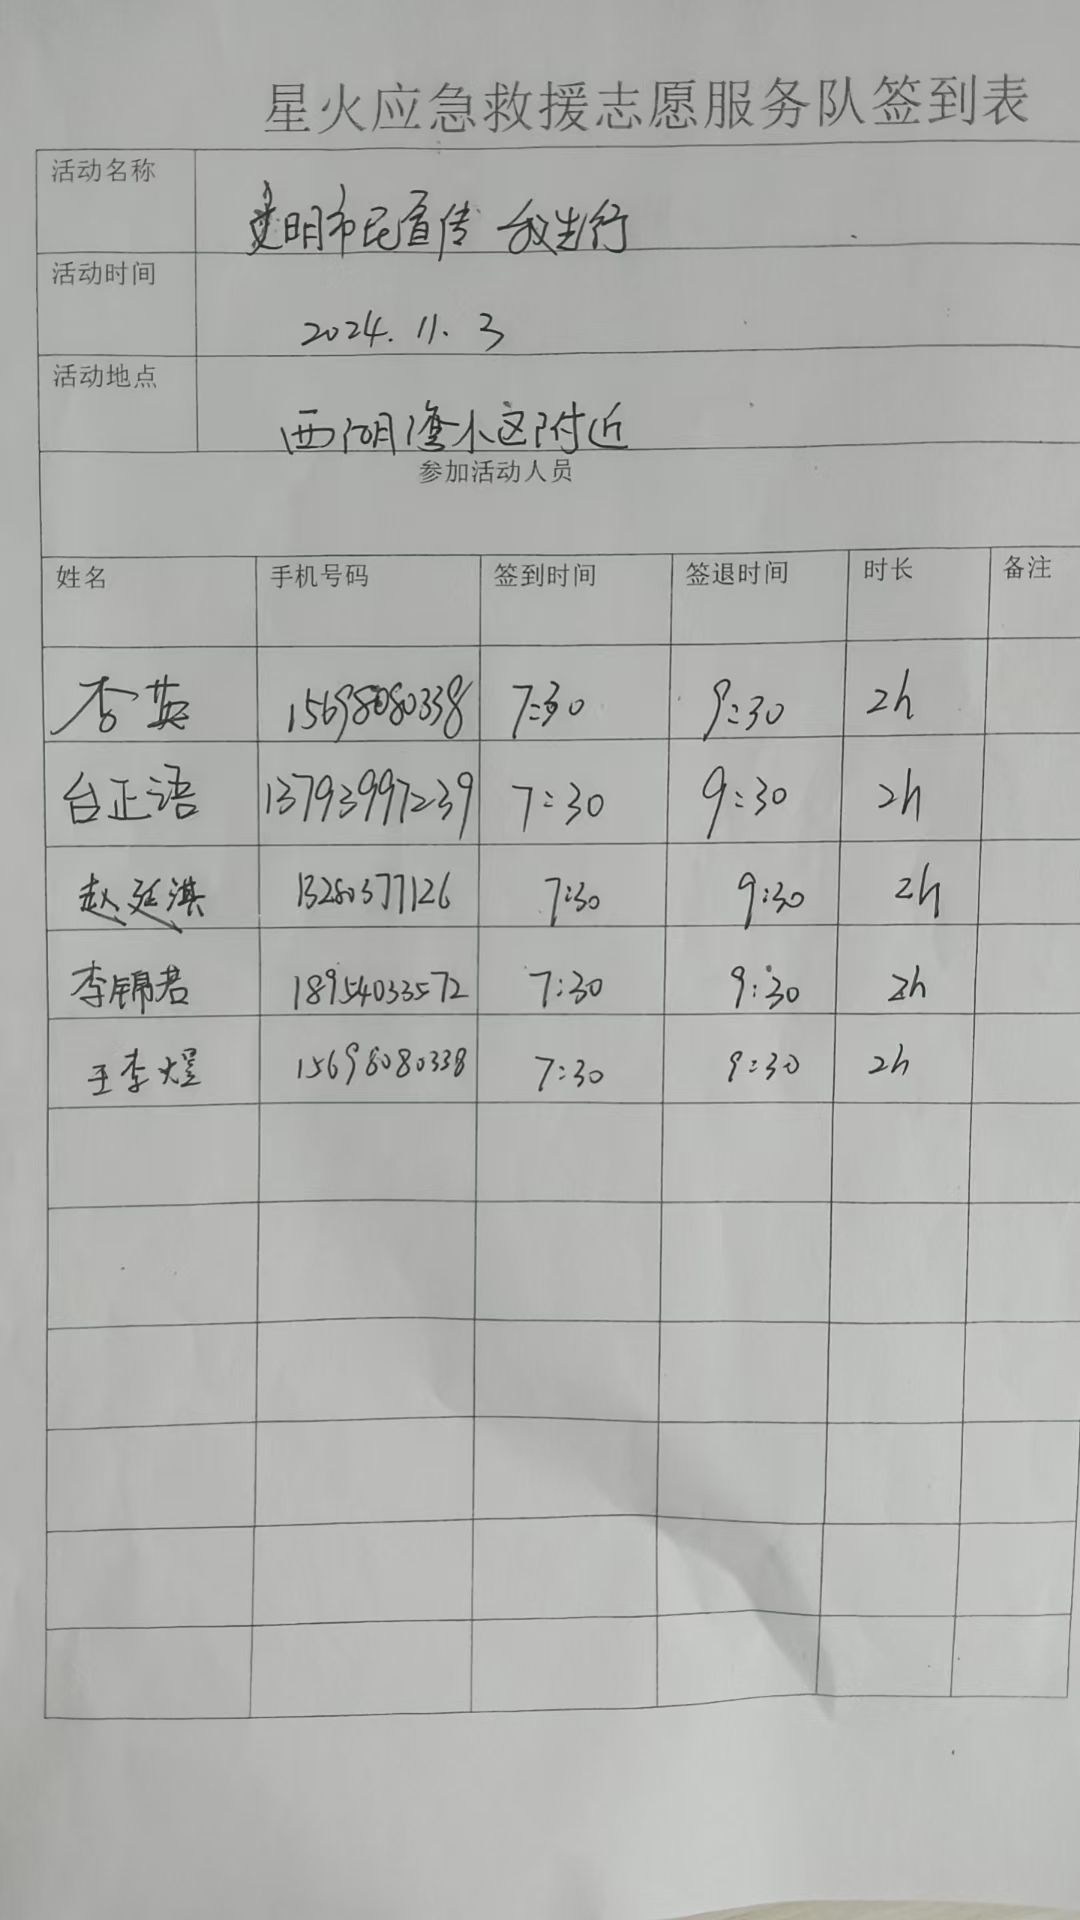 星火应急救援志愿服务队签到表
活动名称 文明市民宣传 我先行
活动时间 2024.11.3
活动地点 西湖湾小区附近
参加活动人员
姓名 手机号码 签到时间 签退时间 时长 备注
李英 15698080338 7:30 9:30 2h
台正语 13793997239 7:30 9:30 2h
赵延淇 13280377126 7:30 9:30 2h
李锦君 18954033572 7:30 9:30 2h
王李煜 15698080338 7:30 9:30 2h